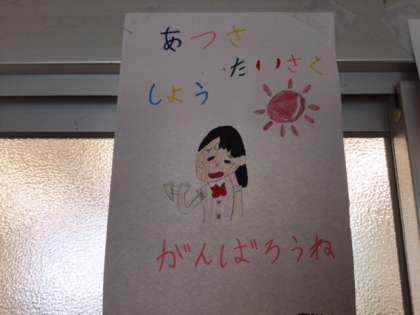 あつさ
たいさく
しよう
がんばろうね